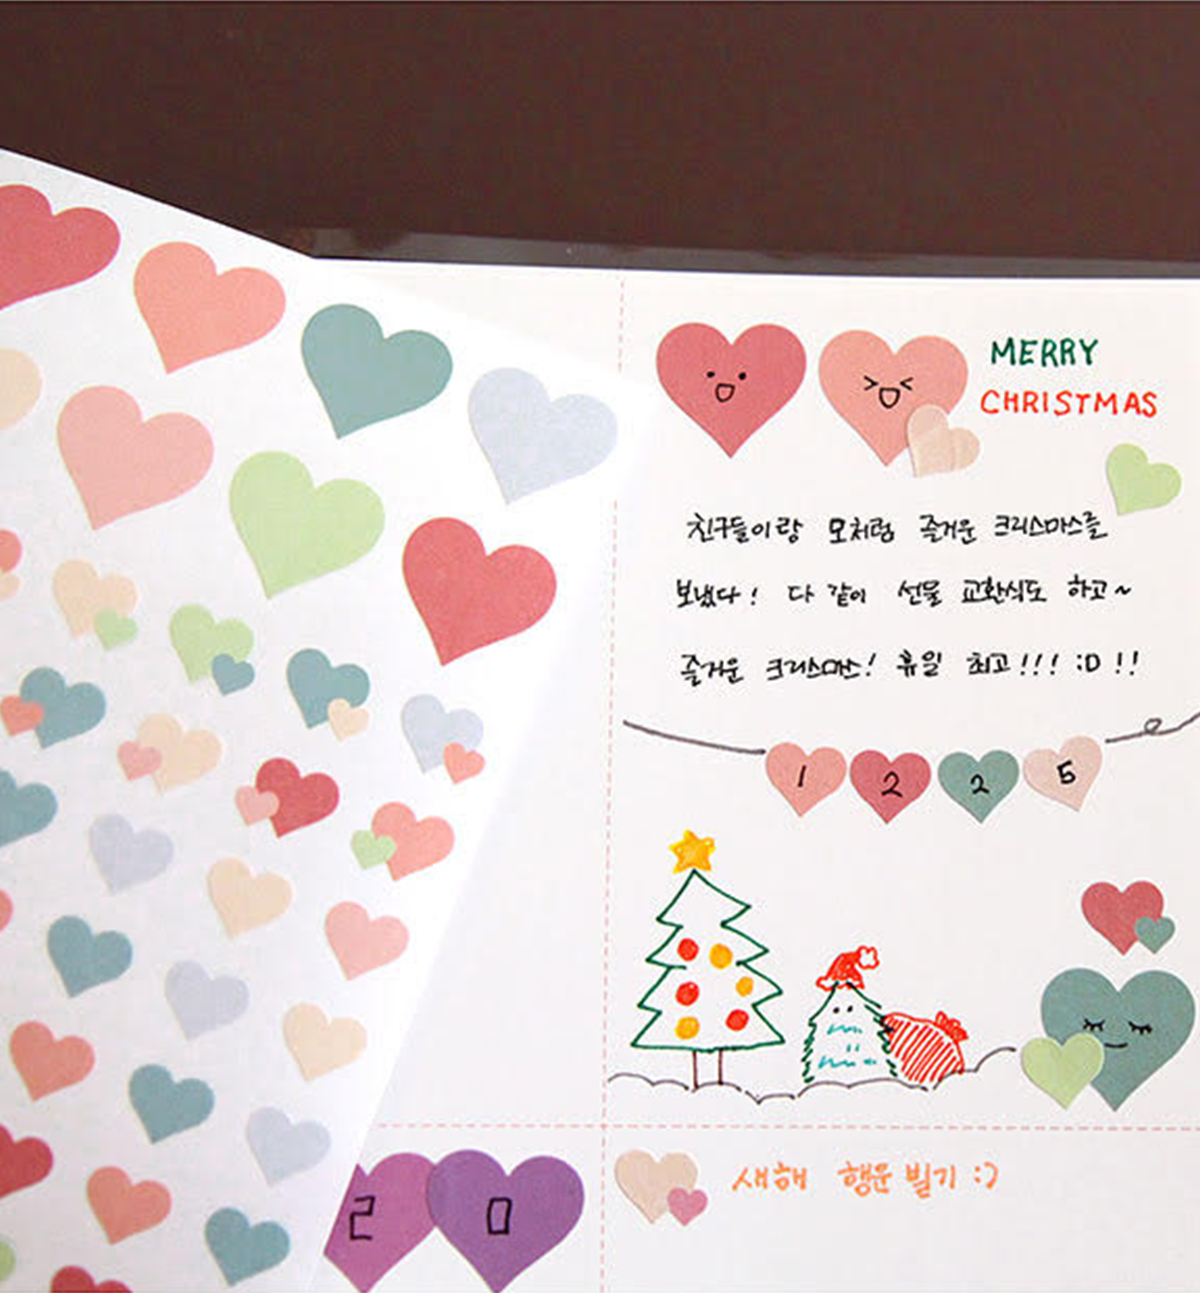 MERRY
CHRISTMAS
친구들이랑 모처럼 즐거운 크리스마스를
보냈다! 다 같이 선물 교환식도 하고~
즐거운 크리스마스! 휴일 최고!!! :D !!
1 2 2 5
2 0
새해 행운 빌기 :)